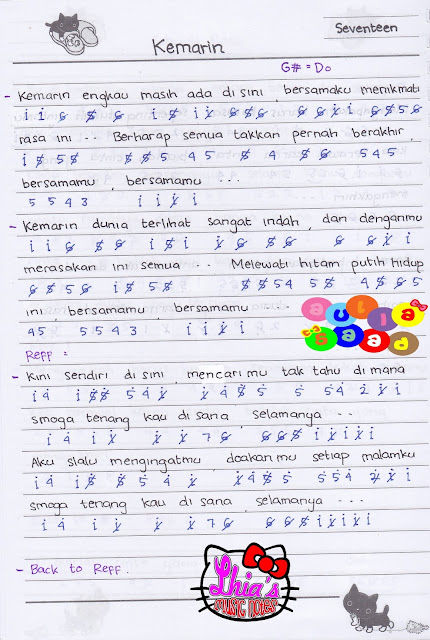 Seventeen
Kemarin
G# = Do
- Kemarin engkau masih ada di sini, bersamaku menikmati
1 1 6 5 6 1 5 1 1 2 6 5 6 6 6 2 1 6 5 6
rasa ini .. Berharap semua takkan pernah berakhir,
1 5 5 5 5 5 5 4 5 5 4 5 6 5 4 5
bersamamu, bersamamu ...
5 5 4 3 1 1 2 1
- Kemarin dunia terlihat sangat indah, dan denganmu
1 1 6 5 6 1 5 1 2 6 5 6 6 6 2 1
merasakan ini semua .. Melewati hitam putih hidup
6 5 5 6 1 5 5 5 5 5 5 4 5 5 4 5 6 5
ini bersamamu, bersamamu ..
4 5 5 5 4 3 1 1 2 1
Reff :
- Kini sendiri di sini, mencarimu tak tahu di mana
smoga tenang kau di sana, selamanya ..
Aku slalu mengingatmu, doakanmu setiap malamku
smoga tenang kau di sana, selamanya ...
- Back to Reff.
aclia
saad
Lhia's
MUSIC NOTES